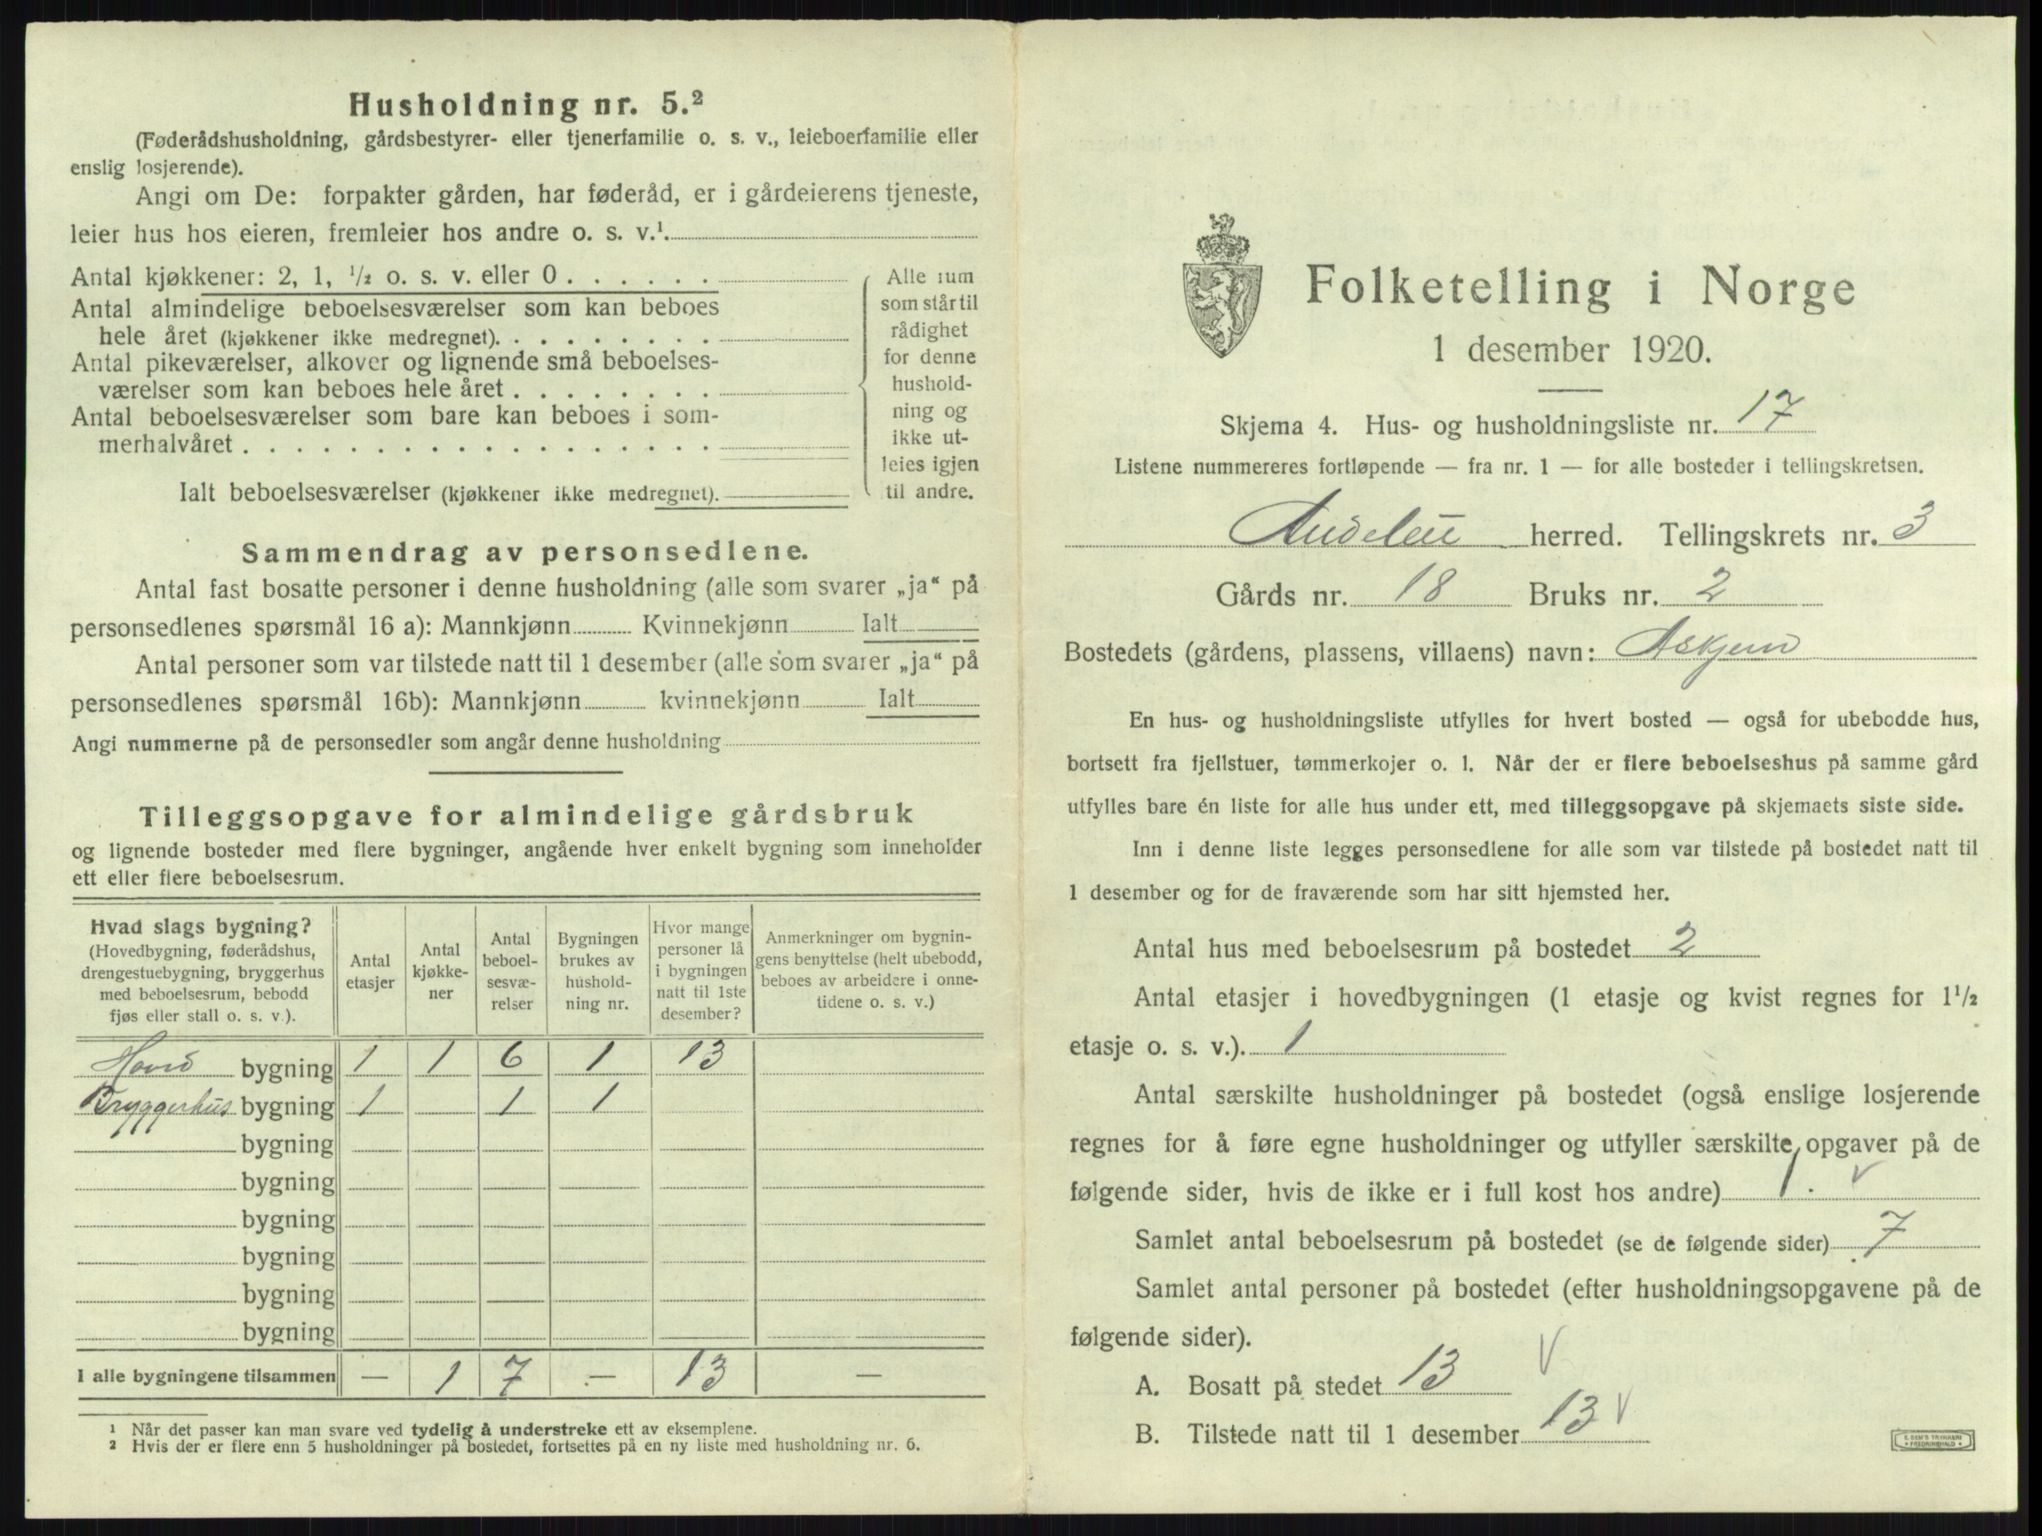 Husholdning nr. 5.²
(Føderådshusholdning, gårdsbestyrer- eller tjenerfamilie o. s. v., leieboerfamilie eller
enslig losjerende).
Angi om De: forpakter gården, har føderåd, er i gårdeierens tjeneste,
leier hus hos eieren, fremleier hos andre o. s. v.¹.
Antal kjøkkener: 2, 1, ½ o. s. v. eller 0
Antal almindelige beboelsesværelser som kan beboes
hele året (kjøkkener ikke medregnet).
Antal pikeværelser, alkover og lignende små beboelses-
værelser som kan beboes hele året
Antal beboelsesværelser som bare kan beboes i som-
merhalvåret
Ialt beboelsesværelser (kjøkkener ikke medregnet).
Alle rum
som står til
rådighet
for denne
hushold-
ning og
ikke ut-
leies igjen
til andre.
Sammendrag av personsedlene.
Antal fast bosatte personer i denne husholdning (alle som svarer „ja“ på
personsedlenes spørsmål 16 a): Mannkjønn Kvinnekjønn Ialt
Antal personer som var tilstede natt til 1 desember (alle som svarer „ja“ på
personsedlenes spørsmål 16b): Mannkjønn kvinnekjønn Ialt
Angi nummerne på de personsedler som angår denne husholdning
Tilleggsopgave for almindelige gårdsbruk
og lignende bosteder med flere bygninger, angående hver enkelt bygning som inneholder
ett eller flere beboelsesrum.
Hvad slags bygning?
(Hovedbygning, føderådshus,
drengestuebygning, bryggerhus
med beboelsesrum, bebodd
fjøs eller stall o. s. v.).
Antal
etasjer
Antal
kjøkke-
ner
Antal
beboel-
sesvæ-
relser
Bygningen
brukes av
hushold-
ning nr.
Hvor mange
personer lå
i bygningen
natt til 1ste
desember?
Anmerkninger om bygnin-
gens benyttelse (helt ubebodd,
beboes av arbeidere i onne-
tidene o. s. v.)
Hoved bygning 1 1 6 1 13
Bryggerhus bygning 1 1 1
bygning
bygning
bygning
bygning
bygning
bygning
I alle bygningene tilsammen — 1 7 — 13 —
¹ Når det passer kan man svare ved tydelig å understreke ett av eksemplene.
² Hvis der er flere enn 5 husholdninger på bostedet, fortsettes på en ny liste med husholdning nr. 6.
Folketelling i Norge
1 desember 1920.
Skjema 4. Hus- og husholdningsliste nr. 17
Listene nummereres fortløpende — fra nr. 1 — for alle bosteder i tellingskretsen.
Andebu herred. Tellingskrets nr. 3
Gårds nr. 18 Bruks nr. 2
Bostedets (gårdens, plassens, villaens) navn: Askjem
En hus- og husholdningsliste utfylles for hvert bosted — også for ubebodde hus,
bortsett fra fjellstuer, tømmerkojer o. l. Når der er flere beboelseshus på samme gård
utfylles bare én liste for alle hus under ett, med tilleggsopgave på skjemaets siste side.
Inn i denne liste legges personsedlene for alle som var tilstede på bostedet natt til
1 desember og for de fraværende som har sitt hjemsted her.
Antal hus med beboelsesrum på bostedet 2
Antal etasjer i hovedbygningen (1 etasje og kvist regnes for 1½
etasje o. s. v.). 1
Antal særskilte husholdninger på bostedet (også enslige losjerende
regnes for å føre egne husholdninger og utfyller særskilte opgaver på de
følgende sider, hvis de ikke er i full kost hos andre) 1. v
Samlet antal beboelsesrum på bostedet (se de følgende sider) 7
Samlet antal personer på bostedet (efter husholdningsopgavene på de
følgende sider).
A. Bosatt på stedet 13 v
B. Tilstede natt til 1 desember 13 v